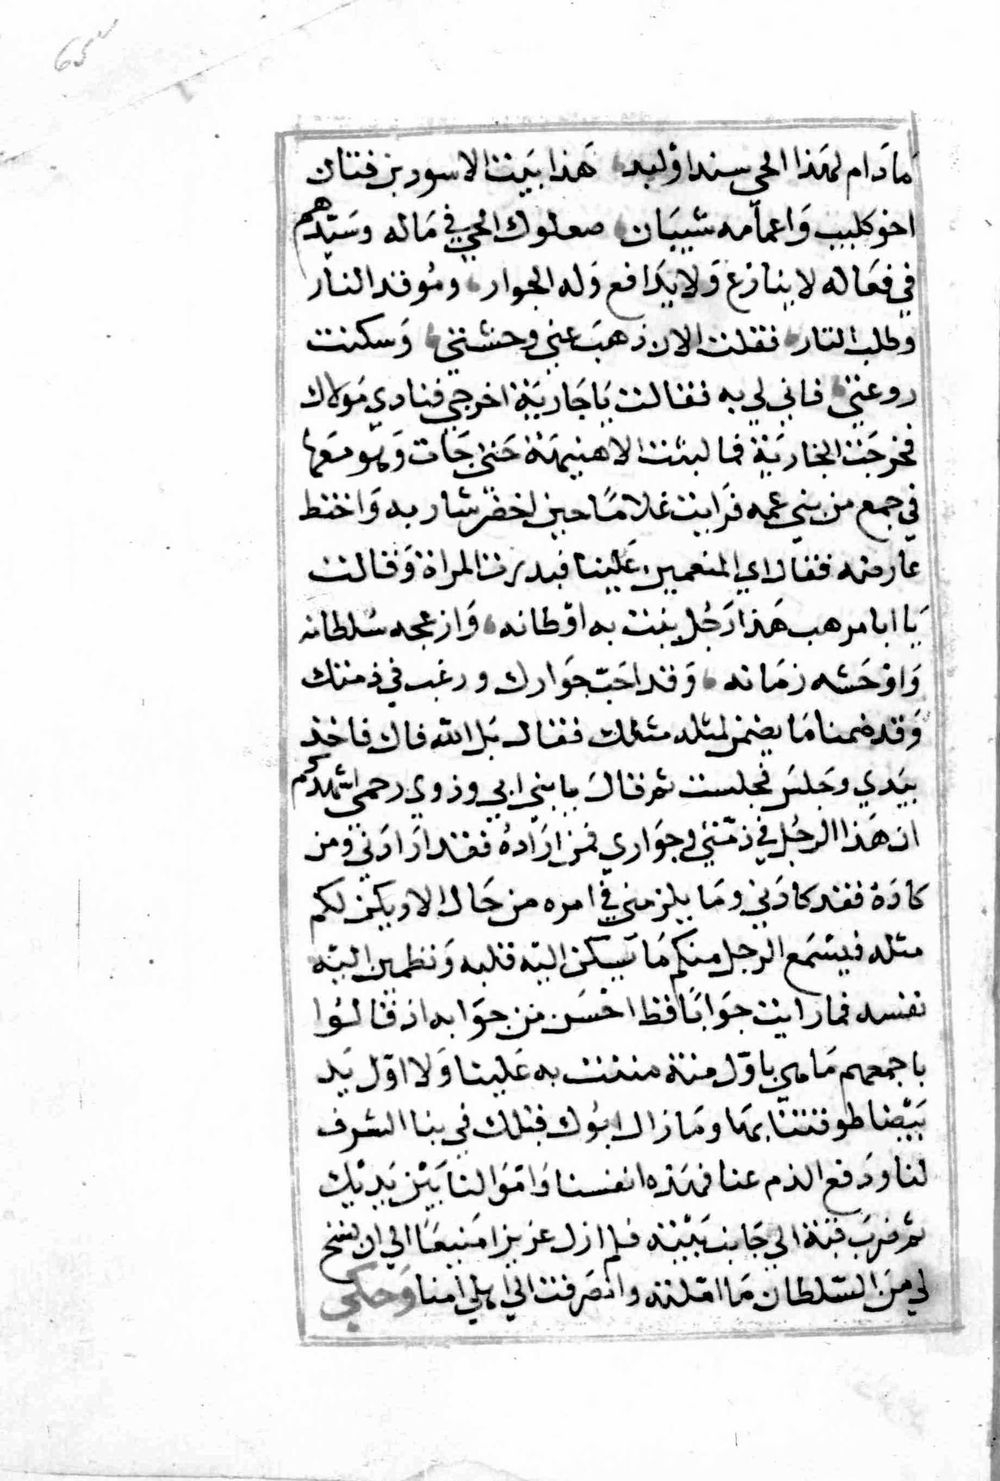 ما دام لهذا الحي سند اولبد هذا بيت الاسود بن فتنان
اخو كليب واعمامه شيبان صعلوك الحي في ماله وسيدهم
في فعاله لا ينازع ولا يدافع وله الجوار وموقد النار
وطلب الثار فقلت الان ذهب عني وحشتي وسكنت
روعتي فاني لي به فقالت يا جارية اخرجي فنادي مولاك
فخرجت الجارية فما لبثت الا هنيهة حتي جات وهو معها
في جمع من بني عمه فرايت غلاما حين اخضر شاربه واختط
عارضه فقال اي المنعمين علينا فبدرت المراة وقالت
يا ابا مرهب هذا رجل نبت به اوطانه وازعجه سلطانه
واوحشه زمانه وقد احب جوارك ورغب في ذمتك
وقد ضمنا ما يضمن لمثله مثلك فقال بل الله فاك فاخذ
بيدي وجلس فجلست ثم قال يا بني ابي وذوي رحمي اشهدكم
ان هذا الرجل في ذمتي وجواري فمن اراده فقد ارادني ومن
كاده فقد كادني وما يلزمني في امره من حال الا ويكن لكم
مثله فيسمع الرجل منكم ما يسكن اليه قلبه وتطمين اليه
نفسه فما رايت جوابا قط احسن من جوابه اذ قالوا
باجمعهم ما هي باول منة مننت به علينا ولا اول يد
بيضا طوقتنا بها وما زال ابوك قبلك في بنا الشرف
لنا ودفع الذم عنا فهذه انفسنا واموالنا بين يديك
ثم ضرب قبة الي جانب بيته فلم ازل عزيزا منيعا الي ان سنح
لي من السلطان ما املته وانصرفت الي اهلي امنا وحكي